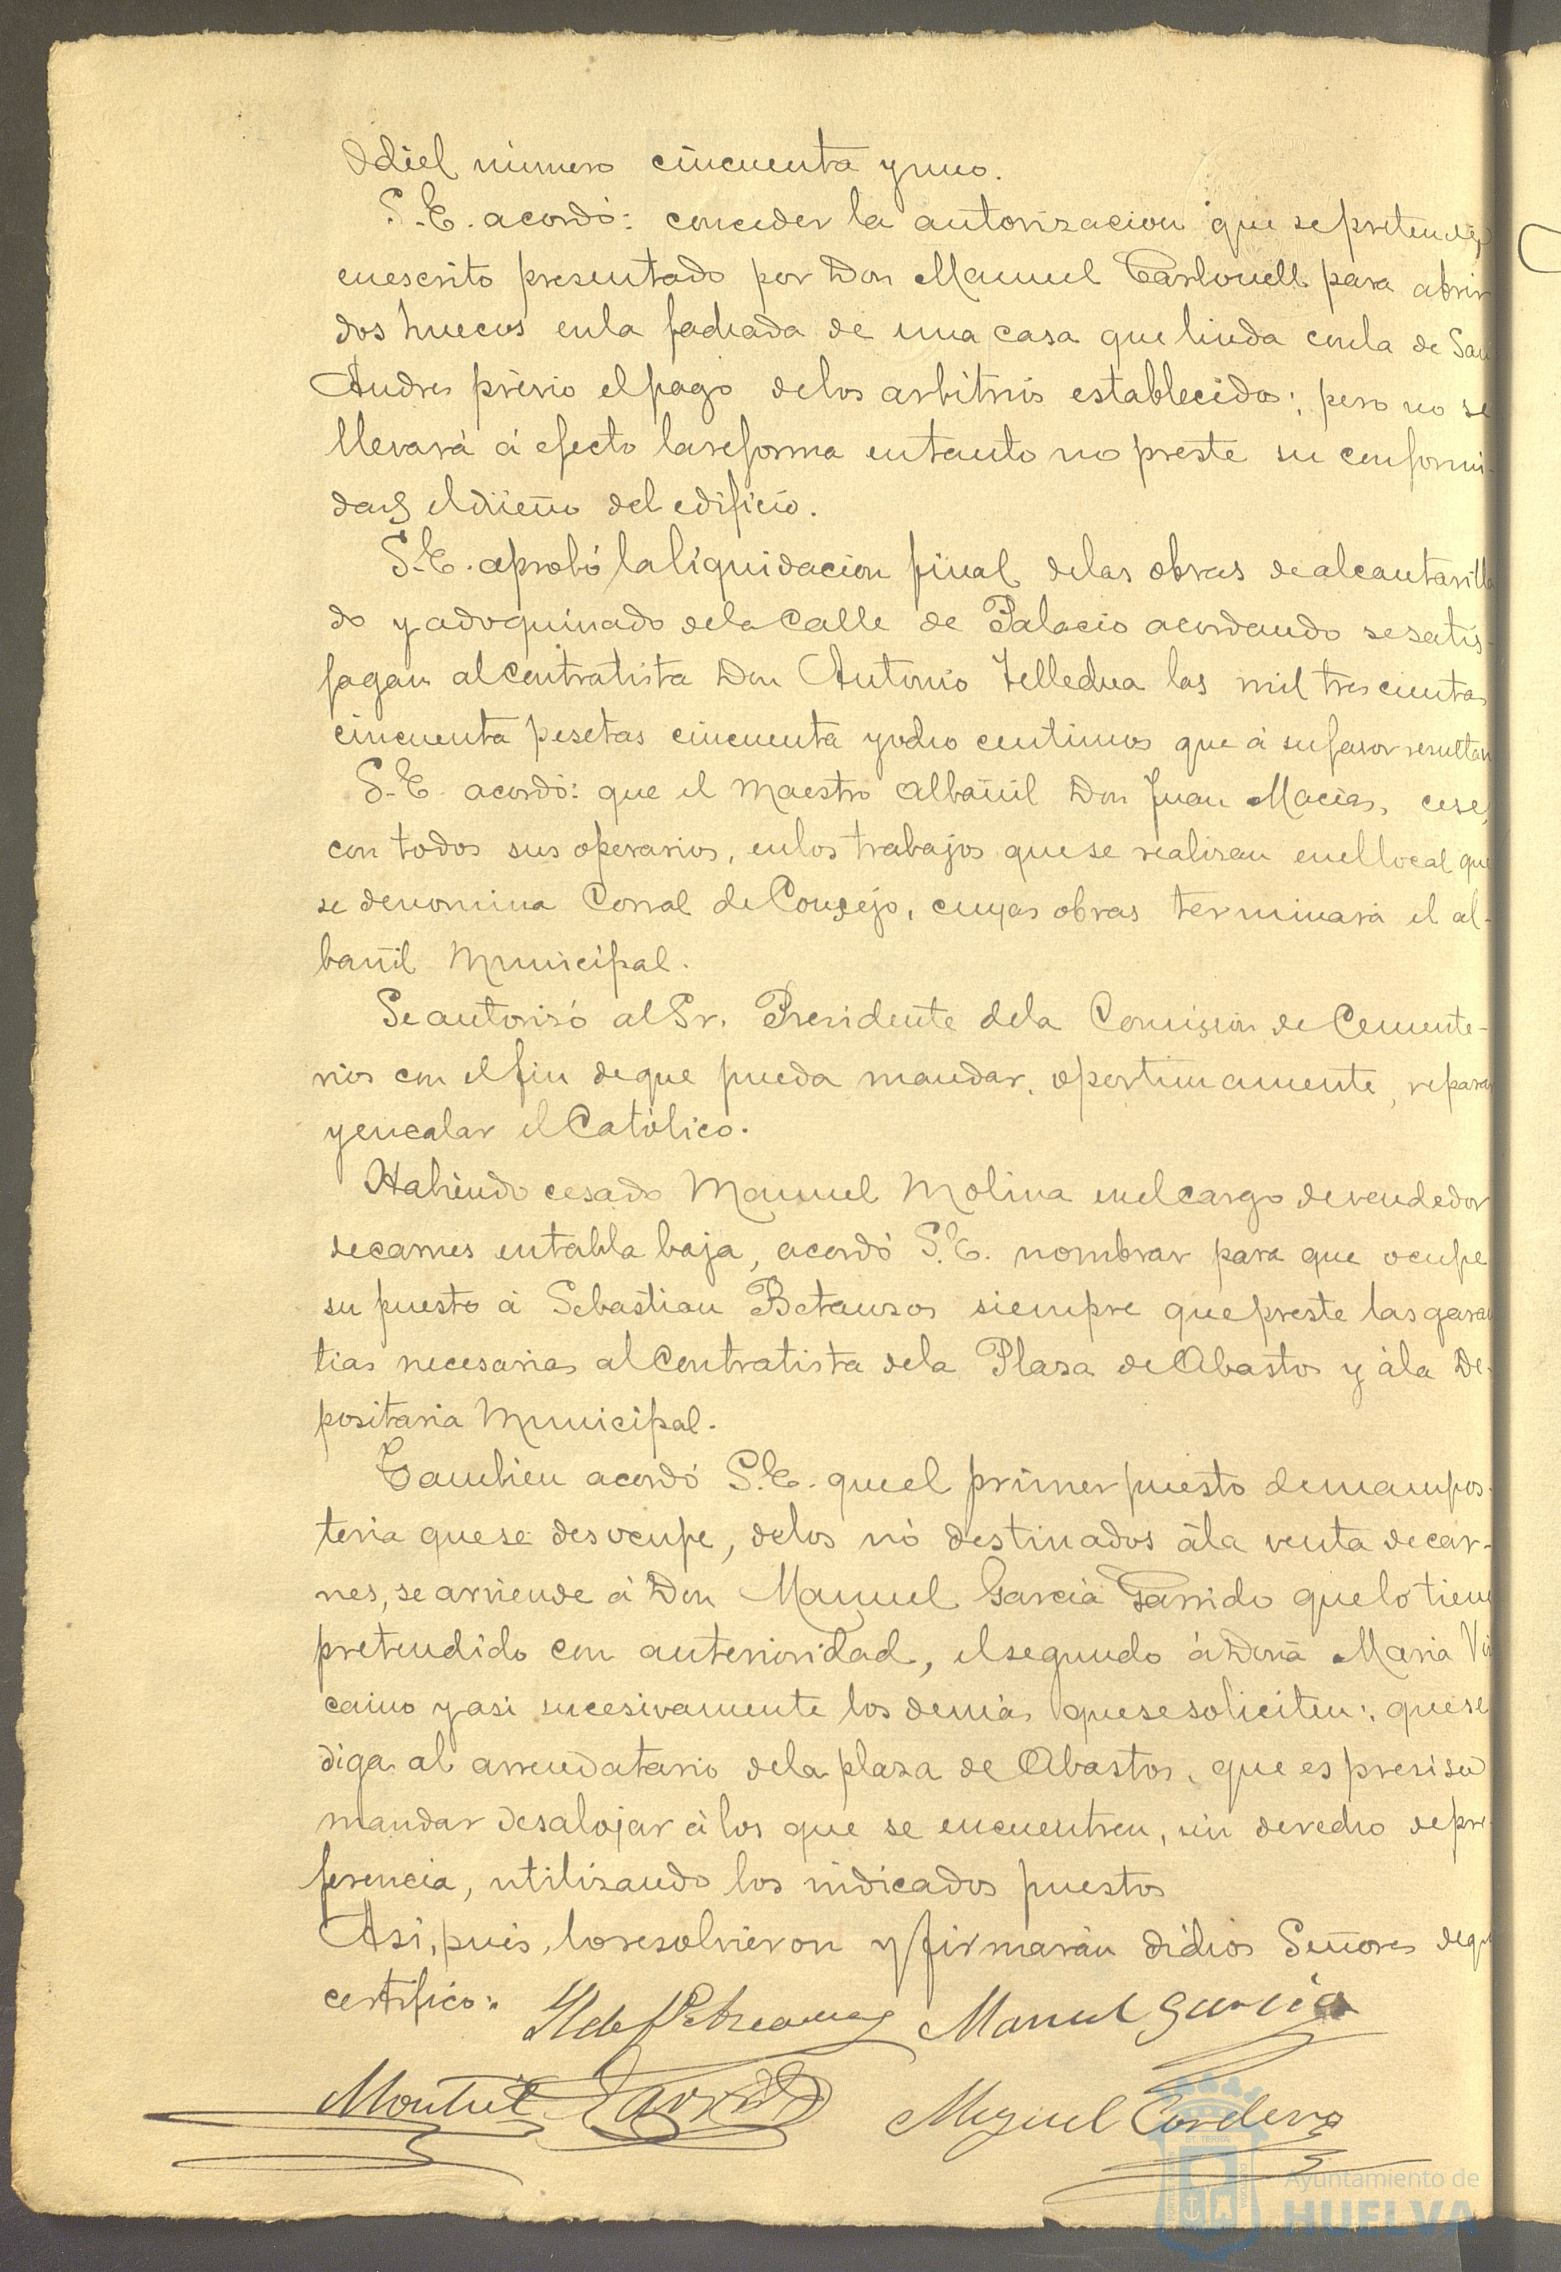 Odiel número cincuenta y uno.
S.E. acordó: conceder la autorizacion que se pretende,
en escrito presentado por Don Manuel Carbonell para abrir
dos huecos en la fachada de una casa que linda con la de San
Andres prévio el pago de los arbitrios establecidos; pero no se
llevará á efecto la reforma en tanto no preste su conformi-
dad el dueño del edificio.
S.E. aprobó la liquidacion final de las obras de alcantarilla
do y adoquinado de la Calle de Palacio acordando se satis-
fagan al Contratista Don Antonio las mil trescientas
cincuenta pesetas cincuenta y ocho centimos que á su favor resultan
S.E. acordó: que el Maestro albañil Don Juan Macias, cese,
con todos sus operarios, en los trabajos que se realizan en el local que
se denomina Corral de Concejo, cuyas obras terminará el al-
bañil Municipal.
Se autorizó al Sr. Presidente de la Comision de Cemente-
rios con el fin de que pueda mandar, oportunamente, reparar
y encalar el Católico.
Habiendo cesado Manuel Molina en el cargo de vendedor
de carnes en tabla baja, acordó S.E. nombrar para que ocupe
su puesto á Sebastian Betanzos siempre que preste las garan
tias necesarias al Contratista de la Plaza de Abastos y á la De-
positaria Municipal.
Tambien acordó S.E. que el primer puesto de mampos-
teria que se desocupe, de los nó destinados á la venta de car-
nes, se arriende á Don Manuel García Garrido que lo tiene
pretendido con anterioridad, el segundo á Doña Maria Viz
caino y asi sucesivamente los demás que se soliciten; que se
diga al arrendatario de la plaza de Abastos, que es presiso
mandar desalojar á los que se encuentren, sin derecho de pre
ferencia, utilizando los indicados puestos
Asi, pues, lo resolvieron y firmarán dichos Señores de que
certifico:
Manuel Garcia
Miguel Cordero
Ayuntamiento de
HUELVA